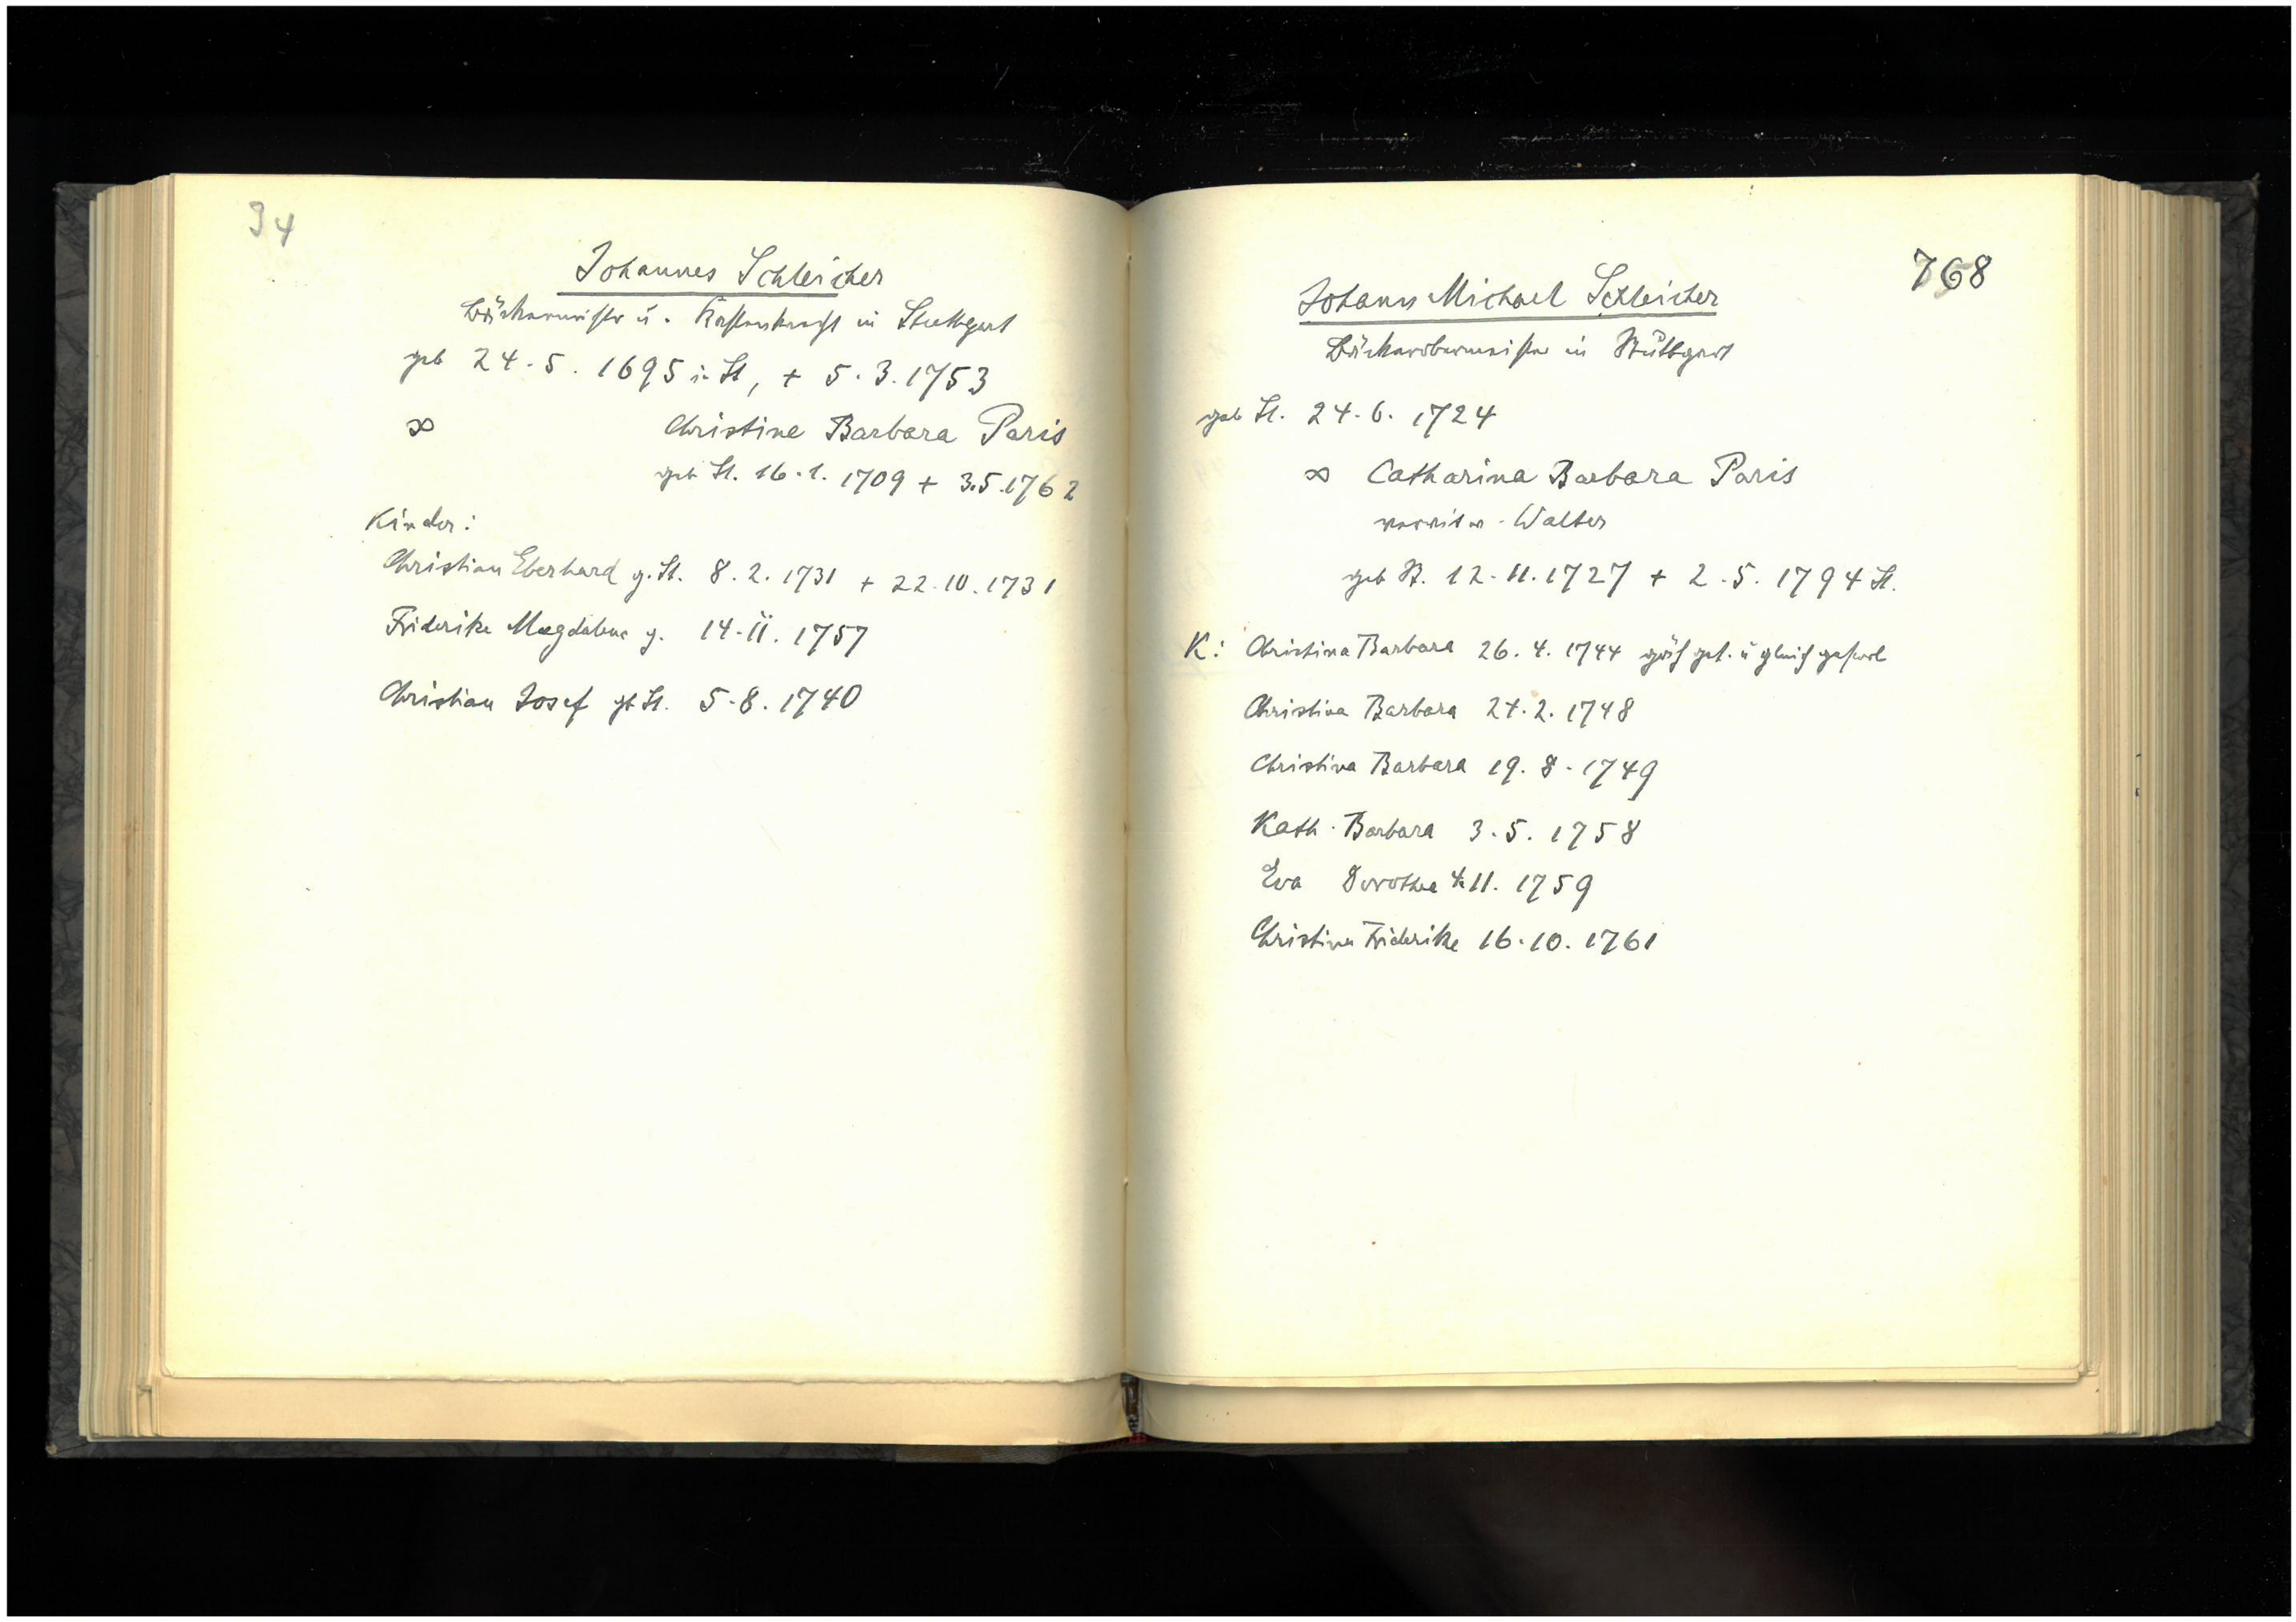 34
Johannes Schleicher
Bäckermeister u. Kastenknecht in Stuttgart
geb 24.5.1695 i. St, + 5.3.1753
∞ Christine Barbara Paris
geb St. 16.1.1709 + 3.5.1762
Kinder:
Christian Eberhard g. St. 8.2.1731 + 22.10.1731
Friderike Magdalene g. 14.11.1757
Christian Josef gb St. 5.8.1740
768
Johann Michael Schleicher
Bäckerobermeister in Stuttgart
geb St. 24.6.1724
∞ Catharina Barbara Paris
verwitw. Walter
geb St. 12.11.1727 + 2.5.1794 St.
K: Christina Barbara 26.4.1744 get. u gleich gestorb
Christina Barbara 24.2.1748
Christina Barbara 19.8.1749
Kath. Barbara 3.5.1758
Eva Dorothea 4.11.1759
Christina Friderike 16.10.1761